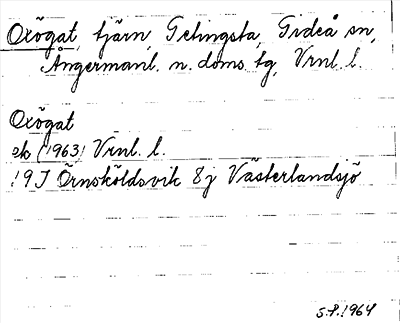 Oxögat, tjärn, Getingsta, Gideå sn,
Ångermanl. n. doms.tg, Vrnl. l.
Oxögat
ek (1963) Vrnl. l.
19J Örnsköldsvik 8g Västerlandsjö
S.P. 1964